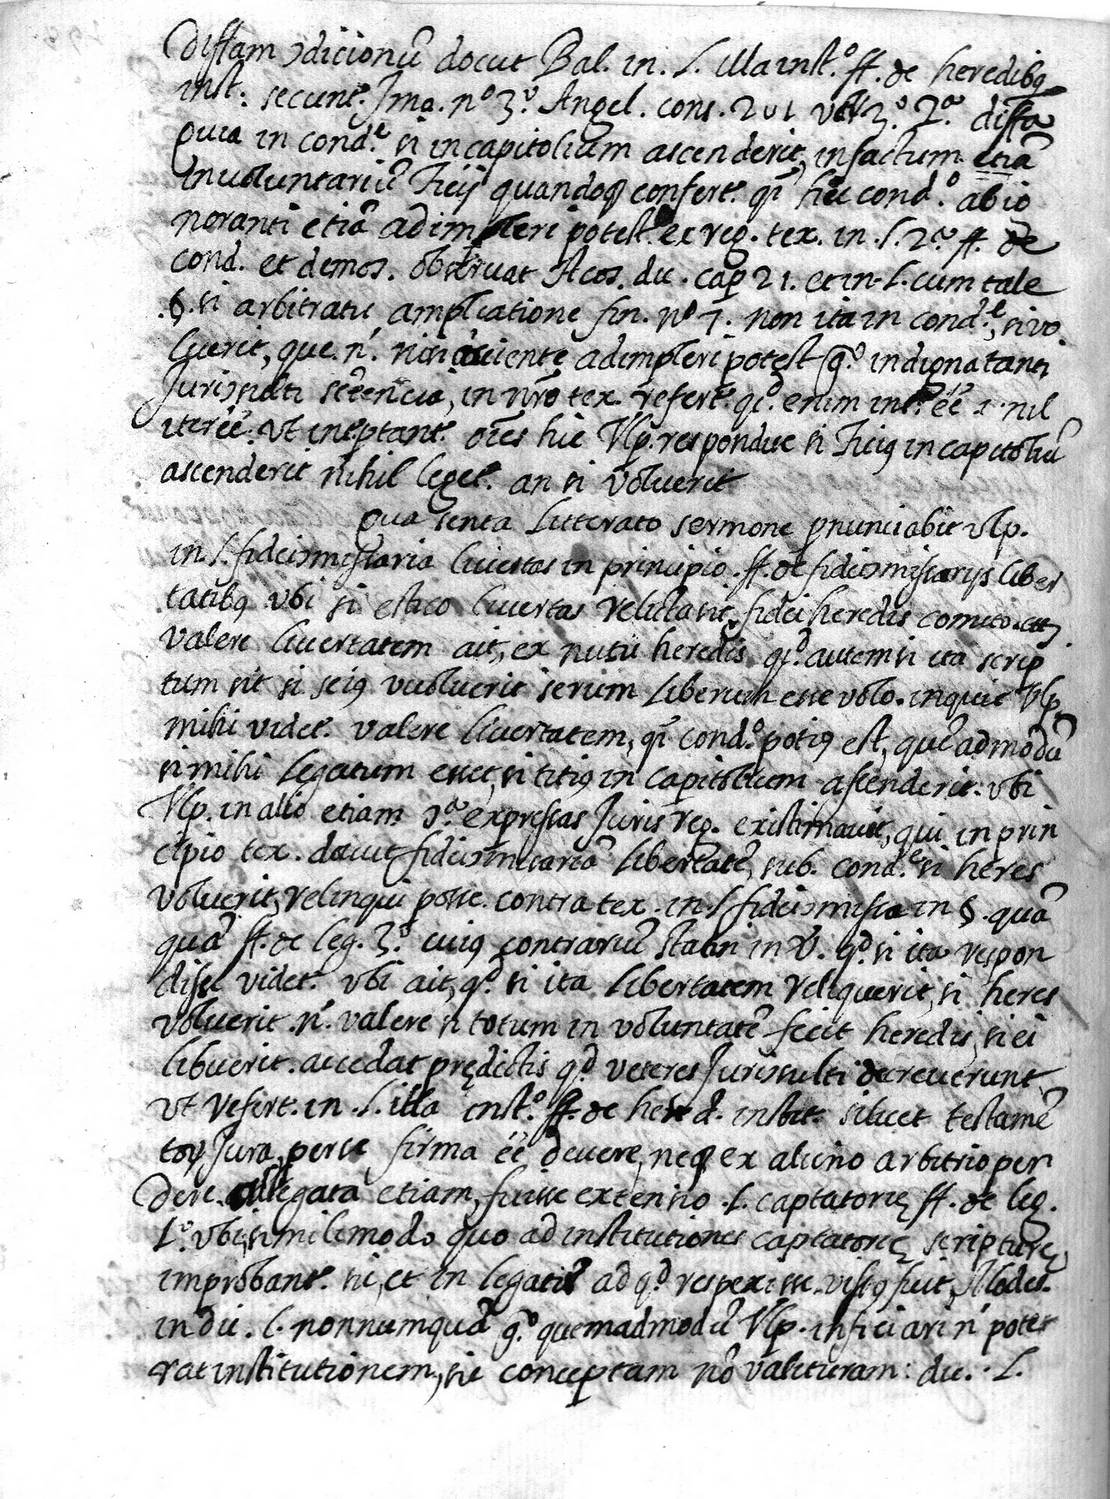 distam ɔdicionũ docuit Bal. in. l. illa inst.º ff. de heredibq
inst: secunt.r Imo. nº 3.º Angel. cons. 201 vels 3.º 2.ª diffa
quia in cond.e si in capitolium ascenderit, in factum etiã
involuntariũ Ticij quandoq confert.r qĩ hec cond.º ab io
noranti etiã adimpleri potest. ex reg. tex. in. l. 2.ª ff. de
cond. et demos. observat Acos. dic. cap 21. et in. l. cum tale
.§. si arbitratu ampliatione fin. nº 7. non ita in cond.e, si vo
luerit, que. n. nisi a sciente adimpleri potest q.º indignatanti
Jurisɔsulti sentencia, in nro tex. refert.r qd. enim int.rẽẽ 1. nil
iteriẽ. vt ineptant.r oẽs hic Vlp. respondit si Ticiq in capitoliũ
ascenderit nihil leget. an si voluerit
qua senta litterato sermone pnunciabit vlp.
in. l. fideicɔmissaria livertas in principio. ff. de fideicɔmisarijs liber
tatibq vbi si estico livertas relicta sit, fidei heredis comito. ett
valere livertatem ait, ex nutũ heredis qd. autem si ita scrip
tum sit si seiq vuoluerit servum liberum esse volo. inquit Vlp
mihi videt.r valere livertatem, qĩ cond.º potiq est, quẽ admodũ
si mihi legatum esset, si titiq in capitolium ascenderit. vbi
Vlp. in alio etiam ɔ.ª expressas Juris reg. existimavit, qui in prin
cipio tex. docuit fideicɔmissariã libertatẽ, sub. cond.e si heres
voluerit, relinqui posse. contra tex. in. l. fideicɔmissa in §. quã
quã ff. de leg. 3.º cuiq contrariũ statui in V. qd. si ita respon
disse videt.r vbi ait, qd. si ita libertatem reliquerit, si heres
voluerit. n. valere si totum in voluntatẽ fecit heredis, si ei
libuerit. accedat prędictis qd veteres Jurisɔsulti decreverunt
vt refert.r in. l. illa inst.º ff. de hered. instit. silicet testamẽ
toȝ Jura, per se firma ẽẽ devere, neq ex alieno arbitrio pen
dere. ad legata etiam, fuisse extensio .l. captatorię ff. de leg.
1.º vbi, simili modo quo ad institutiones captatorię scripturę
improbant.r sic, et in legatis ad qd respexisse. visq fuit, Modes.
in dic. l. nonnumquã q.º quemadmodũ Vlp. inficiari n potes
rat institutionem, sic conceptam nõ valituram: dic. l.